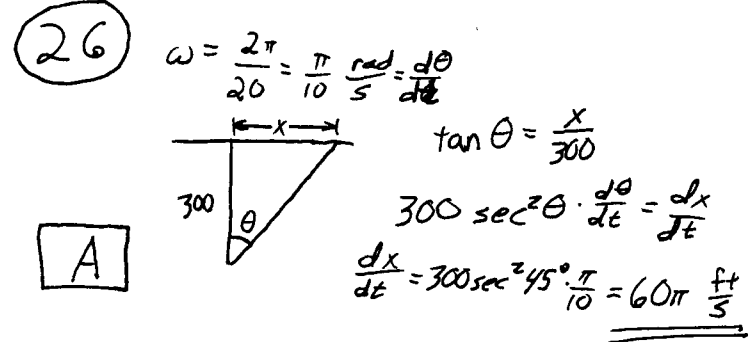 26
ω = 2π/20 = π/10 rad/s = dθ/dt
x
tan θ = x/300
300
θ
300 sec²θ · dθ/dt = dx/dt
A
dx/dt = 300 sec² 45° · π/10 = 60π ft/s